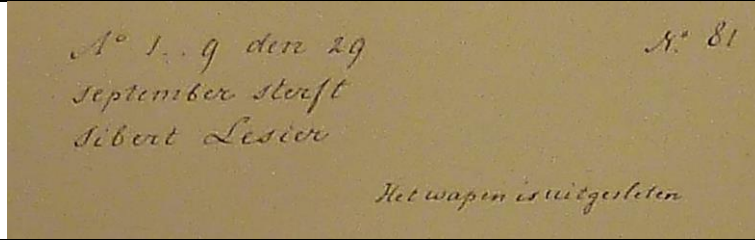 Aº 1..9 den 29
Nº 81
september sterft
Sibert Lesier
Het wapen is uitgesleten